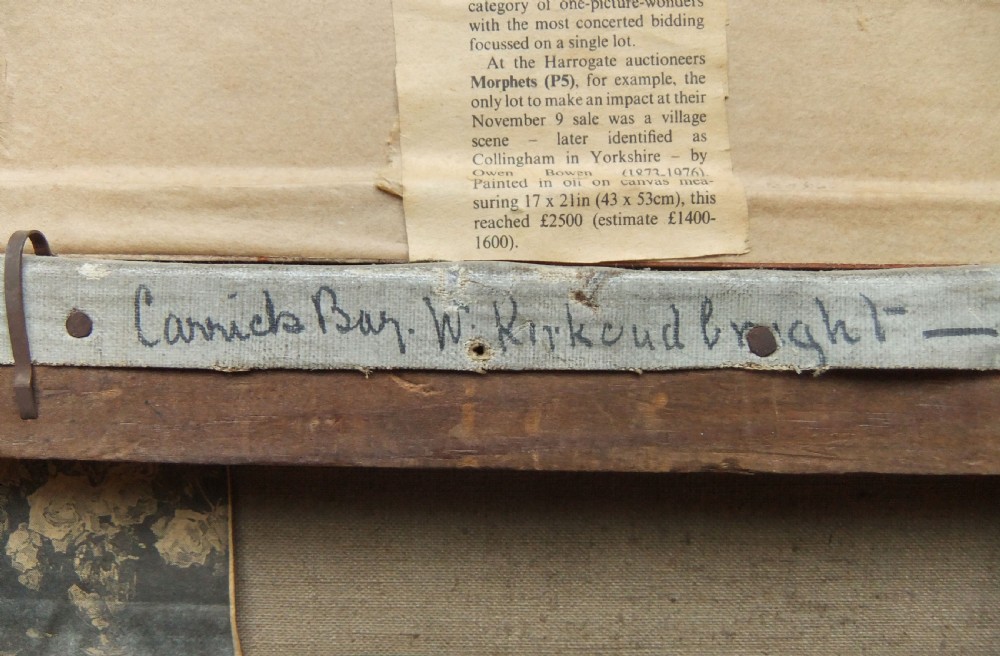 category of one-picture-wonders
with the most concerted bidding
focussed on a single lot.
At the Harrogate auctioneers
Morphets (P5), for example, the
only lot to make an impact at their
November 9 sale was a village
scene – later identified as
Collingham in Yorkshire – by
Owen Bowen (1873-1976).
Painted in oil on canvas mea-
suring 17 x 21in (43 x 53cm), this
reached £2500 (estimate £1400-
1600).
Carrick Bay. W. Kirkcudbright —